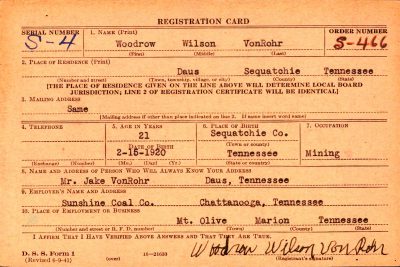 REGISTRATION CARD
SERIAL NUMBER 1. NAME (Print) ORDER NUMBER
S-4 Woodrow Wilson VonRohr S-466
(First) (Middle) (Last)
2. PLACE OF RESIDENCE (Print)
Daus Sequatchie Tennessee
(Number and street) (Town, township, village, or city) (County) (State)
[THE PLACE OF RESIDENCE GIVEN ON THE LINE ABOVE WILL DETERMINE LOCAL BOARD
JURISDICTION; LINE 2 OF REGISTRATION CERTIFICATE WILL BE IDENTICAL]
3. MAILING ADDRESS
Same
(Mailing address if other than place indicated on line 2. If same insert word same)
4. TELEPHONE 5. AGE IN YEARS 6. PLACE OF BIRTH 7. OCCUPATION
21 Sequatchie Co.
DATE OF BIRTH (Town or county)
2-15-1920 Tennessee Mining
(Exchange) (Number) (Mo.) (Day) (Yr.) (State or country)
8. NAME AND ADDRESS OF PERSON WHO WILL ALWAYS KNOW YOUR ADDRESS
Mr. Jake VonRohr Daus, Tennessee
9. EMPLOYER'S NAME AND ADDRESS
Sunshine Coal Co. Chattanooga, Tennessee
10. PLACE OF EMPLOYMENT OR BUSINESS
Mt. Olive Marion Tennessee
(Number and street or R. F. D. number) (Town) (County) (State)
I AFFIRM THAT I HAVE VERIFIED ABOVE ANSWERS AND THAT THEY ARE TRUE.
Woodrow Wilson VonRohr
D. S. S. Form 1 (Registrant's signature)
(Revised 6-9-41) (over)